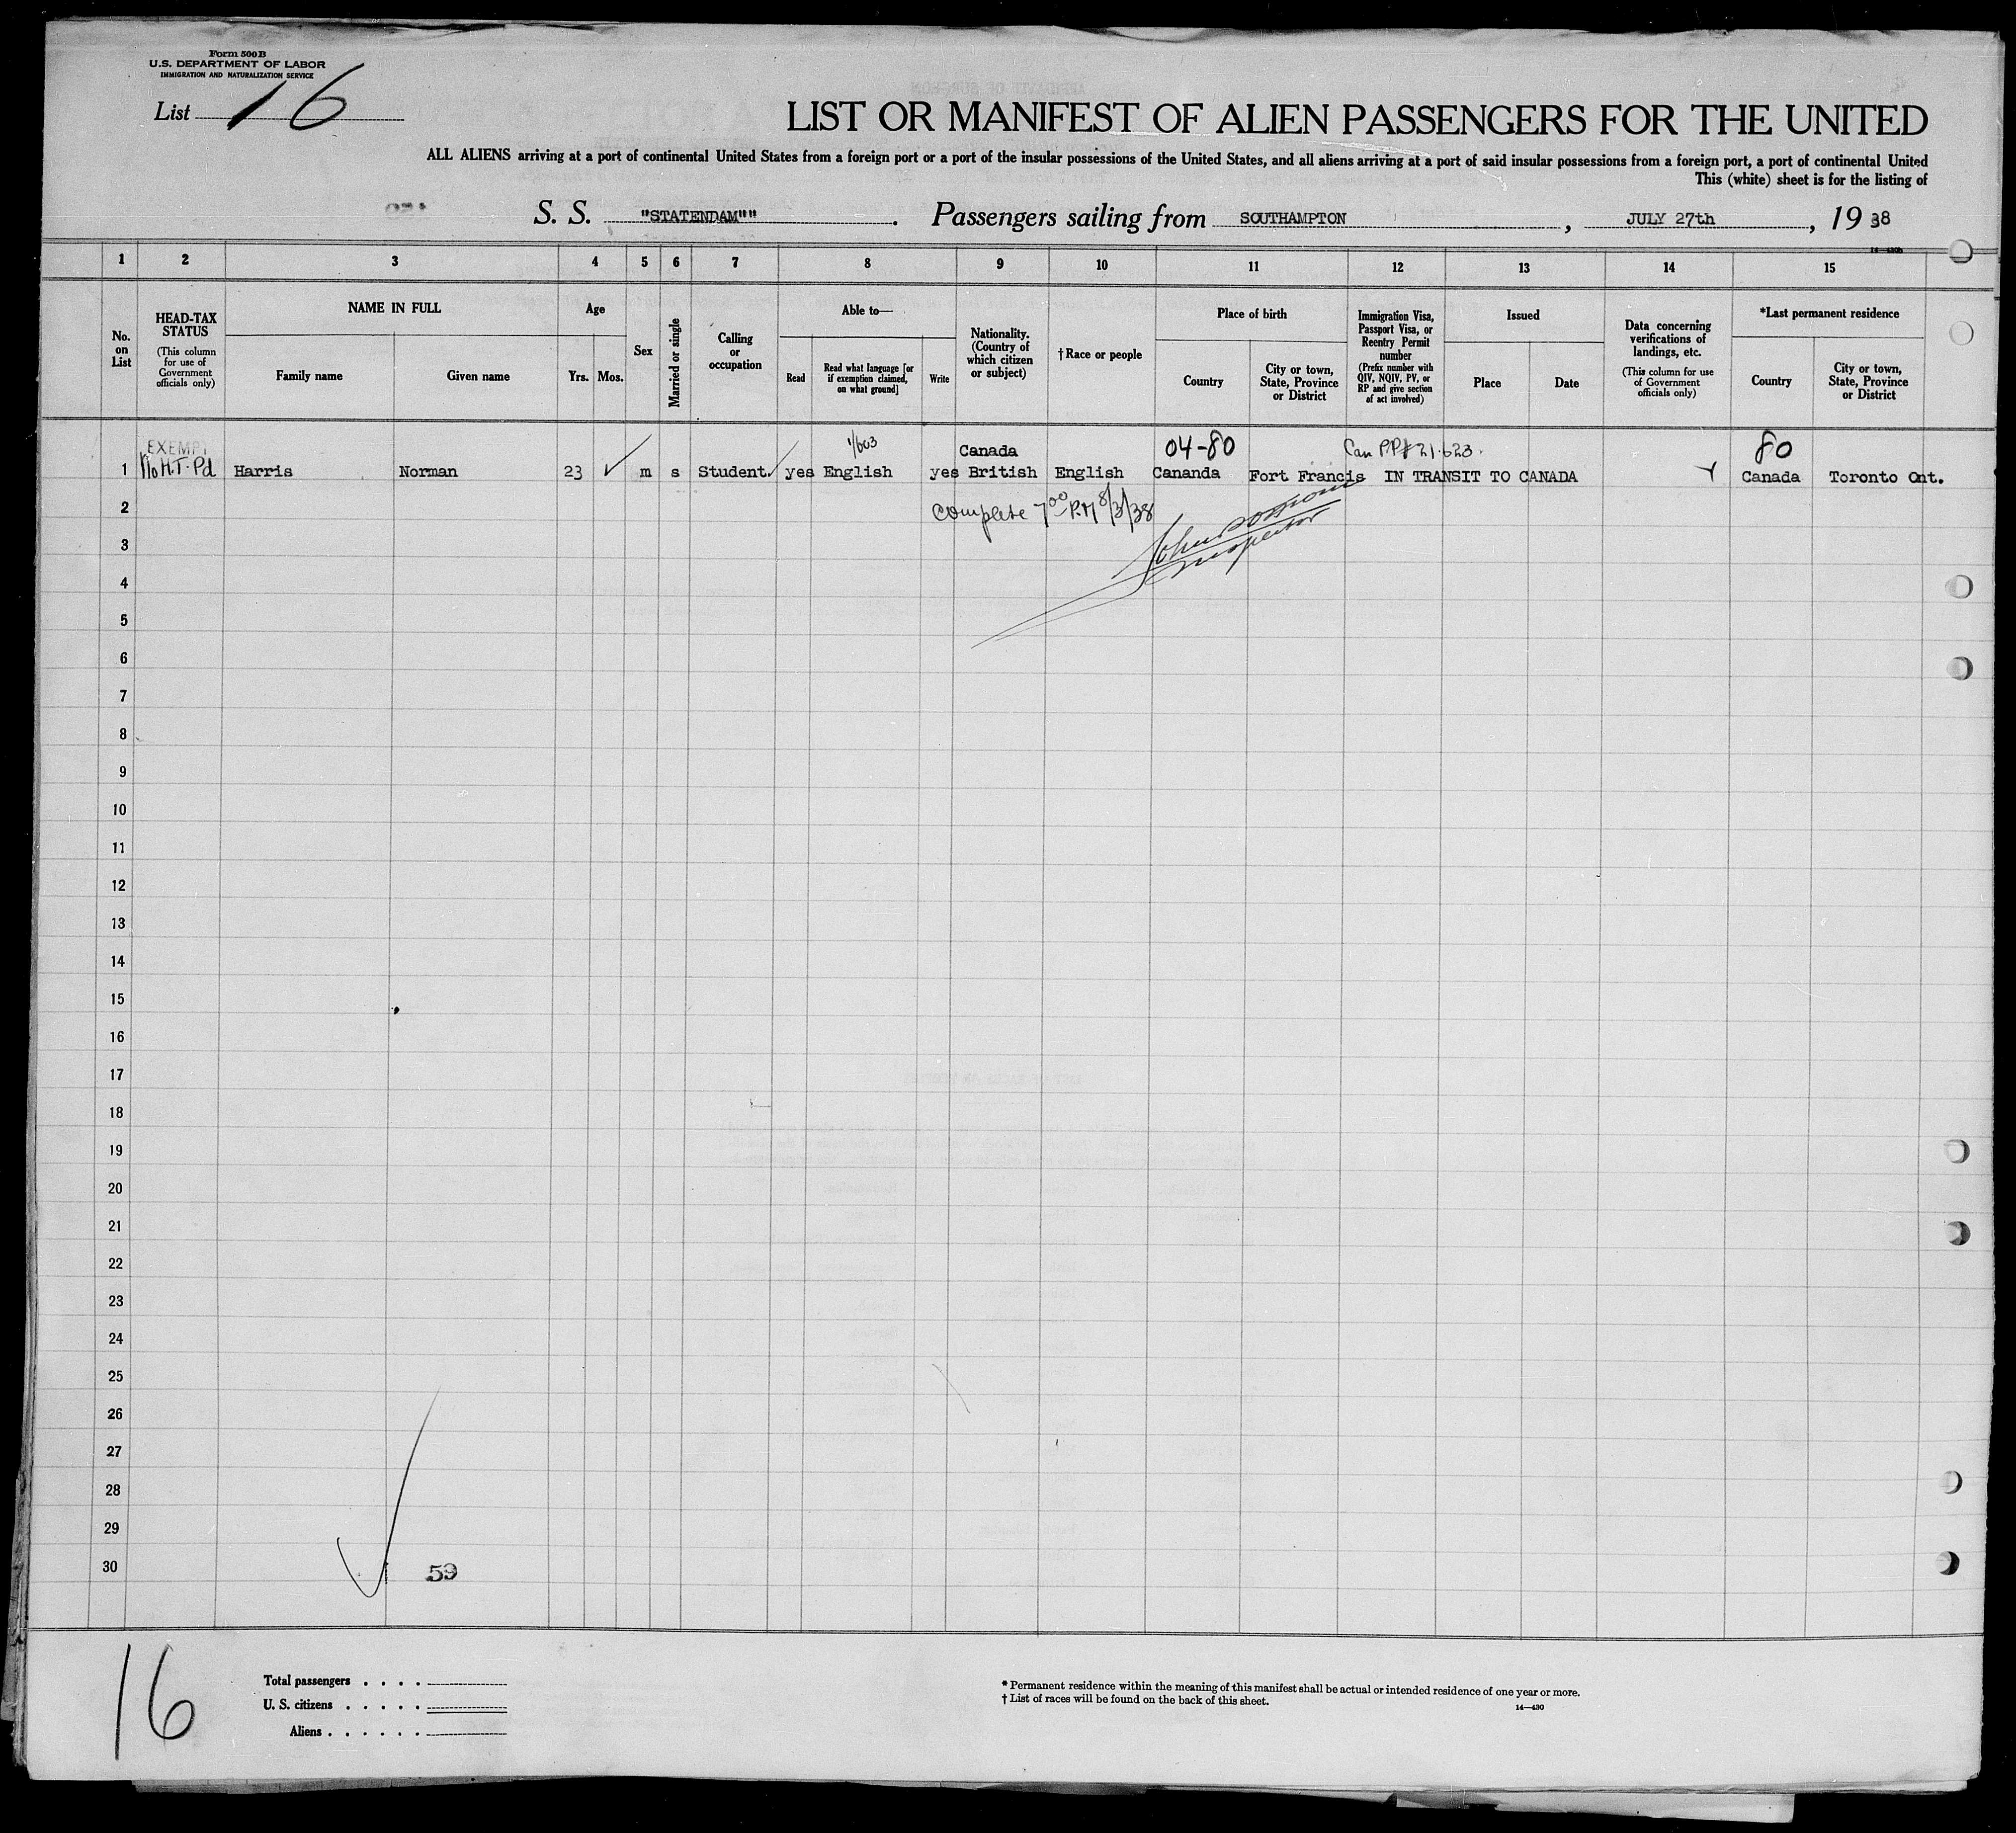 Form 500B
U.S. DEPARTMENT OF LABOR
IMMIGRATION AND NATURALIZATION SERVICE
List 16
LIST OR MANIFEST OF ALIEN PASSENGERS FOR THE UNITED
ALL ALIENS arriving at a port of continental United States from a foreign port or a port of the insular possessions of the United States, and all aliens arriving at a port of said insular possessions from a foreign port, a port of continental United
This (white) sheet is for the listing of
S. S. "STATENDAM"" . Passengers sailing from SOUTHAMPTON , JULY 27th , 19 38
1 2 3 4 5 6 7 8 9 10 11 12 13 14 15
No. on List
HEAD-TAX STATUS
(This column for use of Government officials only)
NAME IN FULL
Family name
Given name
Age
Yrs. Mos.
Sex
Married or single
Calling or occupation
Able to—
Read
Read what language [or if exemption claimed, on what ground]
Write
Nationality. (Country of which citizen or subject)
† Race or people
Place of birth
Country
City or town, State, Province or District
Immigration Visa, Passport Visa, or Reentry Permit number
(Prefix number with QIV, NQIV, PV, or RP and give section of act involved)
Issued
Place
Date
Data concerning verifications of landings, etc.
(This column for use of Government officials only)
*Last permanent residence
Country
City or town, State, Province or District
EXEMPT 1/603 Canada 04-80 Can PP# 21.623. 80
1 No H.T. Pd Harris Norman 23 ✓ m s Student yes English yes British English Cananda Fort Francis IN TRANSIT TO CANADA Canada Toronto Ont.
2 Complete 7 00 P.M 8/3/38
3
Inspector
4
5
6
7
8
9
10
11
12
13
14
15
16
17
18
19
20
21
22
23
24
25
26
27
28
29
30 59
16
Total passengers . . . .
U. S. citizens . . . . .
Aliens . . . . . .
* Permanent residence within the meaning of this manifest shall be actual or intended residence of one year or more.
† List of races will be found on the back of this sheet.
14—430